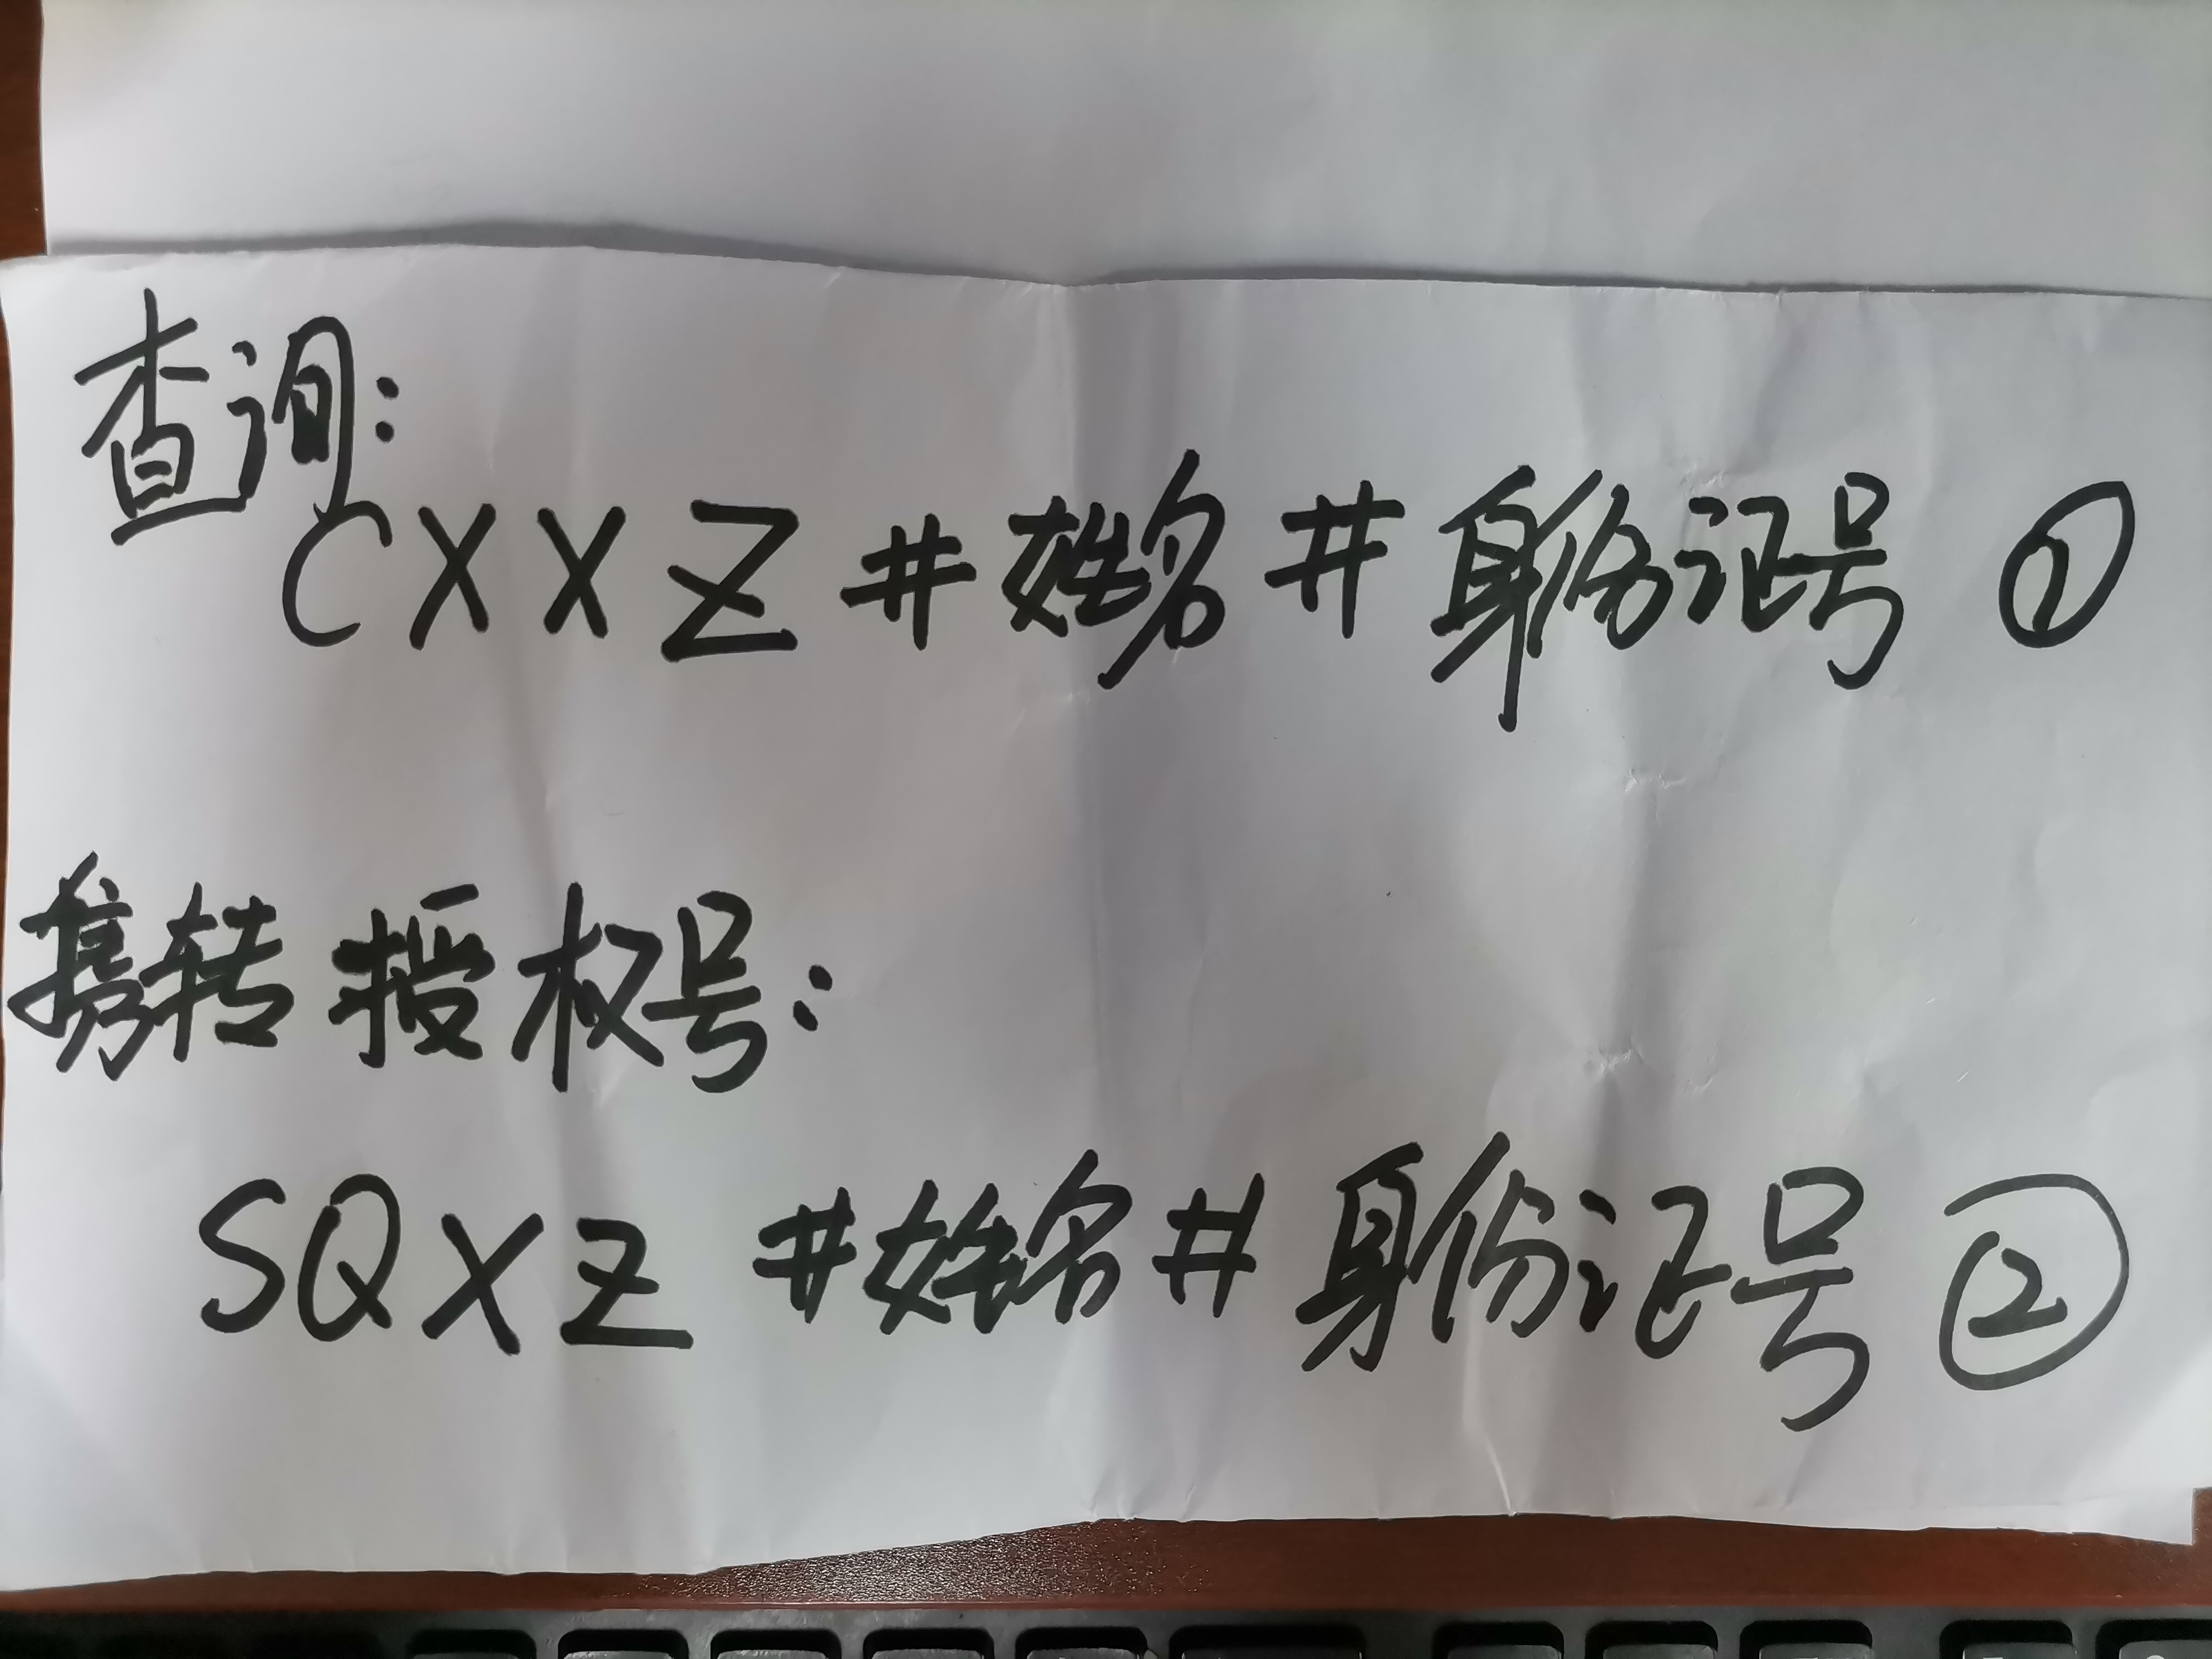 查询:
CXXZ#姓名#身份证号 ①
携转授权号:
SQXZ #姓名# 身份证号 ②